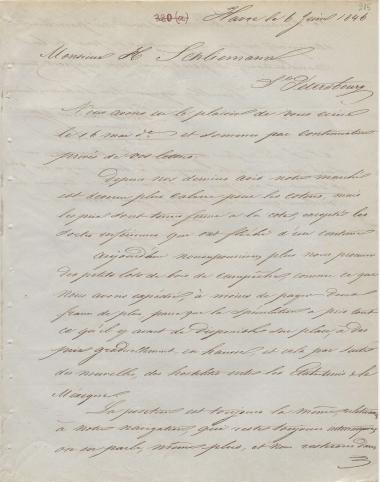 215
320 (a) Havre le 6 Juin 1846
Monsieur H. Schliemann
St. Petersbourg
Nous avons eu le plaisir de vous écrire
le 16 mai dr. et sommes par continuation
privés de vos lettres.
Depuis nos derniers avis notre marché
est devenu plus calme pour les cotons, mais
les prix sont tenus ferme à la cote, exceptés les
sortes inférieures qui ont fléchi d'un centime
aujourdhui nous pouvions plus nous procurer
des petits lots de bois de campêche, comme ce que
nous avons expédié, à moins de payer deux
francs de plus parce que la spéculation a pris tout
ce qu'il y avait de disponible sur place, à des
prix graduellement en hausse, et cela par suite
des nouvelles des hostilités entre les Etats-Unis & le
Mexique.
La position est toujours la même relativement
à notre navigation, qui reste toujours
on en parle même plus, et nous resterons dans